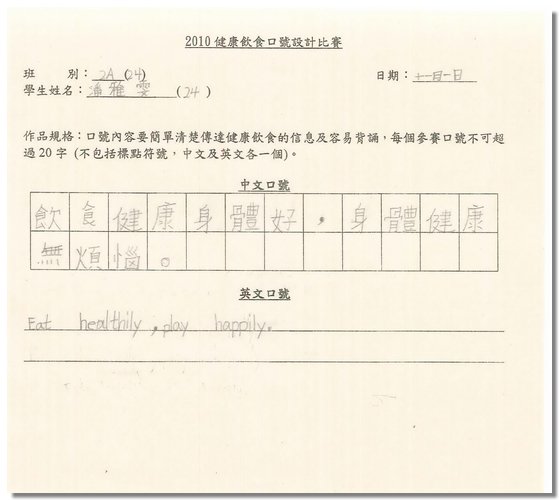 2010 健康飲食口號設計比賽
班 別：2A (24) 日期：十一月一日
學生姓名：潘雅雯 (24)
作品規格：口號內容要簡單清楚傳達健康飲食的信息及容易背誦，每個參賽口號不可超
過 20 字 (不包括標點符號，中文及英文各一個)。
中文口號
飲食健康身體好，身體健康
無煩惱。
英文口號
Eat healthily, play happily.